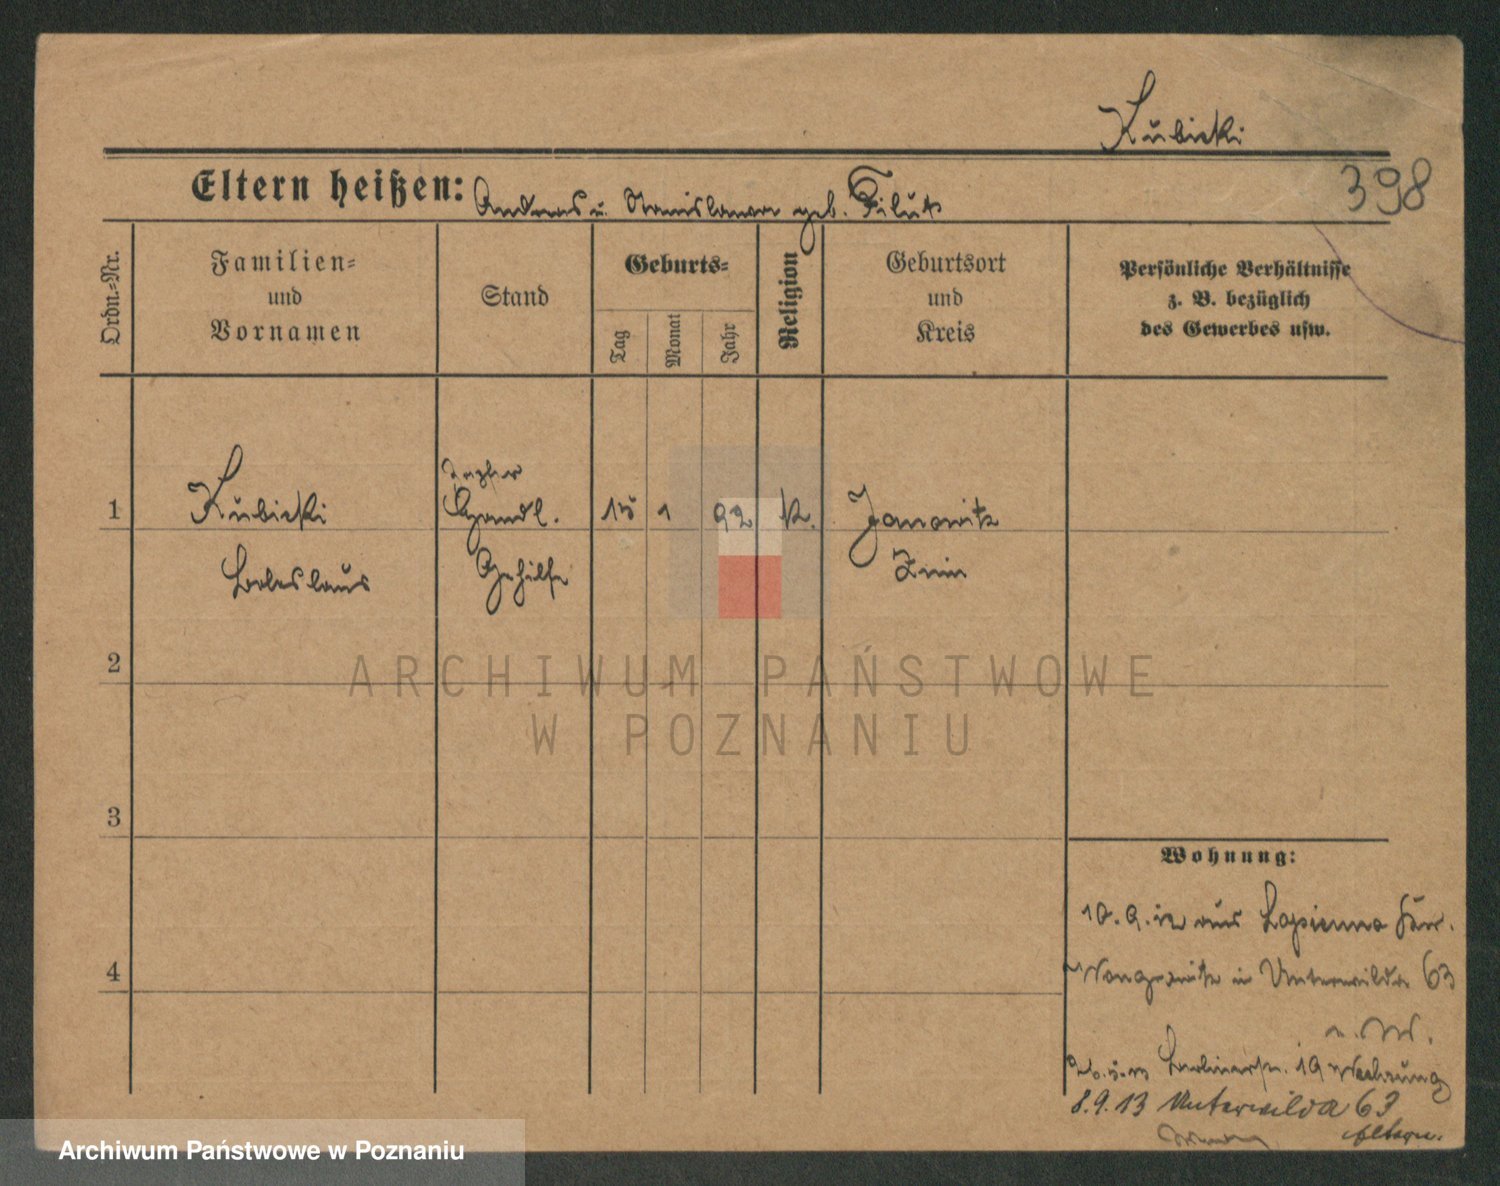 Kubicki
398
Eltern heißen: Andreas u. Stanislawa geb. Filut
Ordn.-Nr.
Familien-
und
Vornamen
Stand
Geburts-
Tag
Monat
Jahr
Religion
Geburtsort
und
Kreis
Persönliche Verhältnisse
z. B. bezüglich
des Gewerbes usw.
1 Kubicki Handl. 15 1 92 k. Janowitz
Boleslaus Gehilfe Znin
2
3
4
ARCHIWUM PAŃSTWOWE
W POZNANIU
Wohnung:
10.9.12 aus Lopienno Kr.
Wongrowitz in Unterwilda 63
Berlinerstr. 19
8.9.13 Unterwilda 63
Eltern.
Archiwum Państwowe w Poznaniu